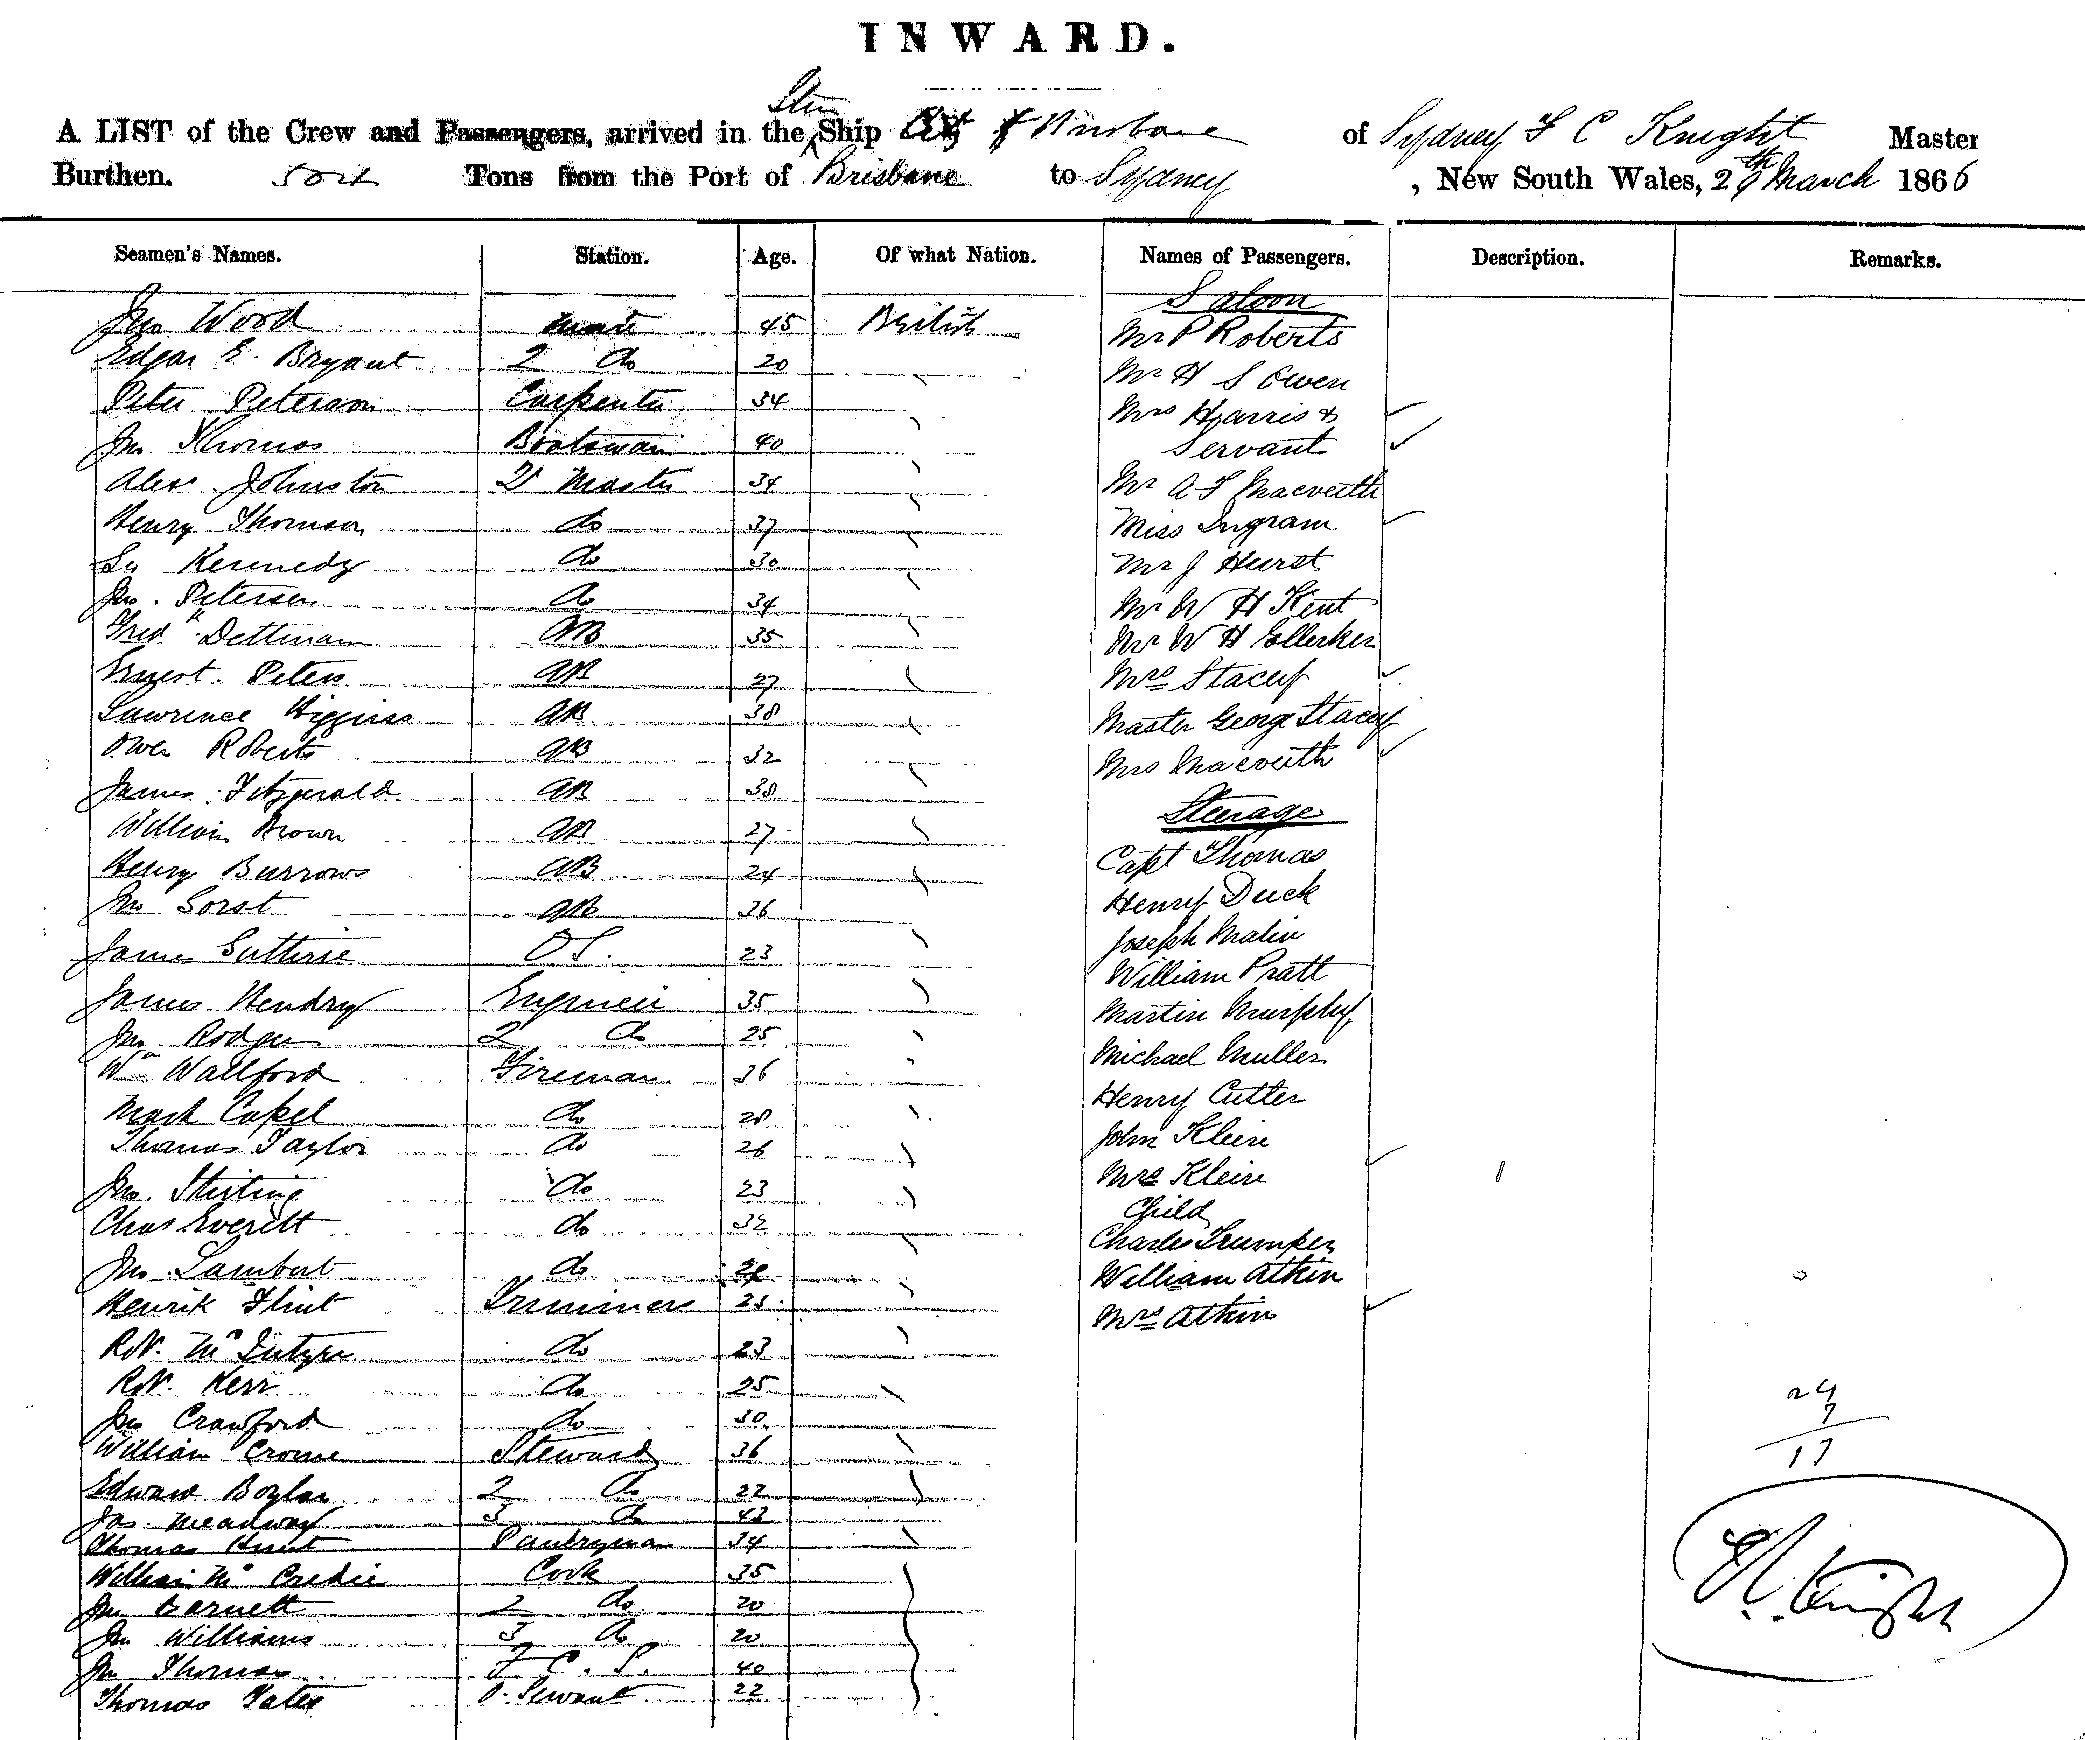 INWARD.
A LIST of the Crew and Passengers, arrived in the Stm Ship City of Brisbane of Sydney F C Knight Master
Burthen. Tons from the Port of Brisbane to Sydney, New South Wales, 29th March 1866
Seamen's Names. Station. Age. Of what Nation. Names of Passengers. Description. Remarks.
Saloon
Jno Wood mate 45 British Mr P Roberts
Edgar E. Bryant 2 do 20 Mr H S Owen
Peter Peterson Carpenter 34 Mrs Harris &
Jno Thomas Boatswain 40 Servant
Alexr Johnston Master 34 Mr A S
Henry Thomson do 37 Miss Ingram
Kennedy do 30 Mr J Hurst
Jno. Petersen do 34 Mr W H Kent
Fred Dettman AB 35 Mr W H Ellerker
Ernest Peters AB 27 Mrs Stacey
Lawrence Higgins AB 38 Master George Stacey
Owen Roberts AB 32 Mrs
James Fitzgerald AB 38 Steerage
William Brown AB 27 Capt Thomas
Henry Burrows AB 24 Henry Duck
Jno AB 36 Joseph Malin
James Guthrie OS. 23 William Pratt
James Hendry Engineer 35 Martin Murphy
Jno Rodger 2 do 25 Michael Muller
Wm Wallford Fireman 36 Henry Cutler
Mark Capel do 28 John Klein
Thomas Taylor do 26 Mrs Klein
Jno. Stirling do 23 Child
Chas Everett do 32 Charles
Jno Lambert do William Atkin
Henrik Flint Trimmers Mrs Atkin
Robt. McIntyre do 23
Robt. Kerr do 25
Jno Crawford do 30
William Crome Steward 36
Edward Boylan 2 do 22
Jas Meadway 3 do 43
Thomas Hunt Pantryman 34
William McCredie Cook 35
Jno 2 do 20
Jno Williams 3 do 20
Jno Thomas F. C. S. 40
Thomas Yates Servant 22
24
7
17
Knight